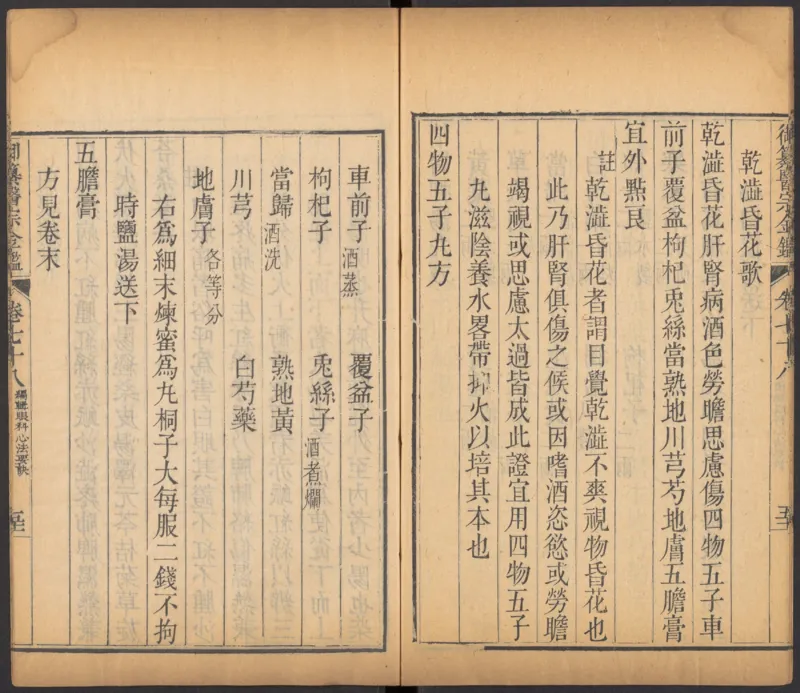 乾澁昏花歌
乾澁昏花肝腎病酒色勞瞻思慮傷四物五子車
前子覆盆枸杞兎絲當熟地川芎芍地膚五膽膏
宜外㸃良
註
乾澁昏花者謂目覺乾澁不爽視物昏花也
此乃肝腎俱傷之候或因嗜酒恣慾或勞瞻
竭視或思慮太過皆成此證宜用四物五子
丸滋陰養水畧帶抑火以培其本也
四物五子丸方
車前子酒蒸 覆盆子
枸杞子 兎絲子酒煮爛
當歸酒洗 熟地黃
川芎 白芍藥
地膚子各等分
右爲細末煉蜜爲丸桐子大每服二錢不拘
時鹽湯送下
五膽膏
方見卷末
御纂醫宗金鑑 卷七十八 編輯眼科心法要訣